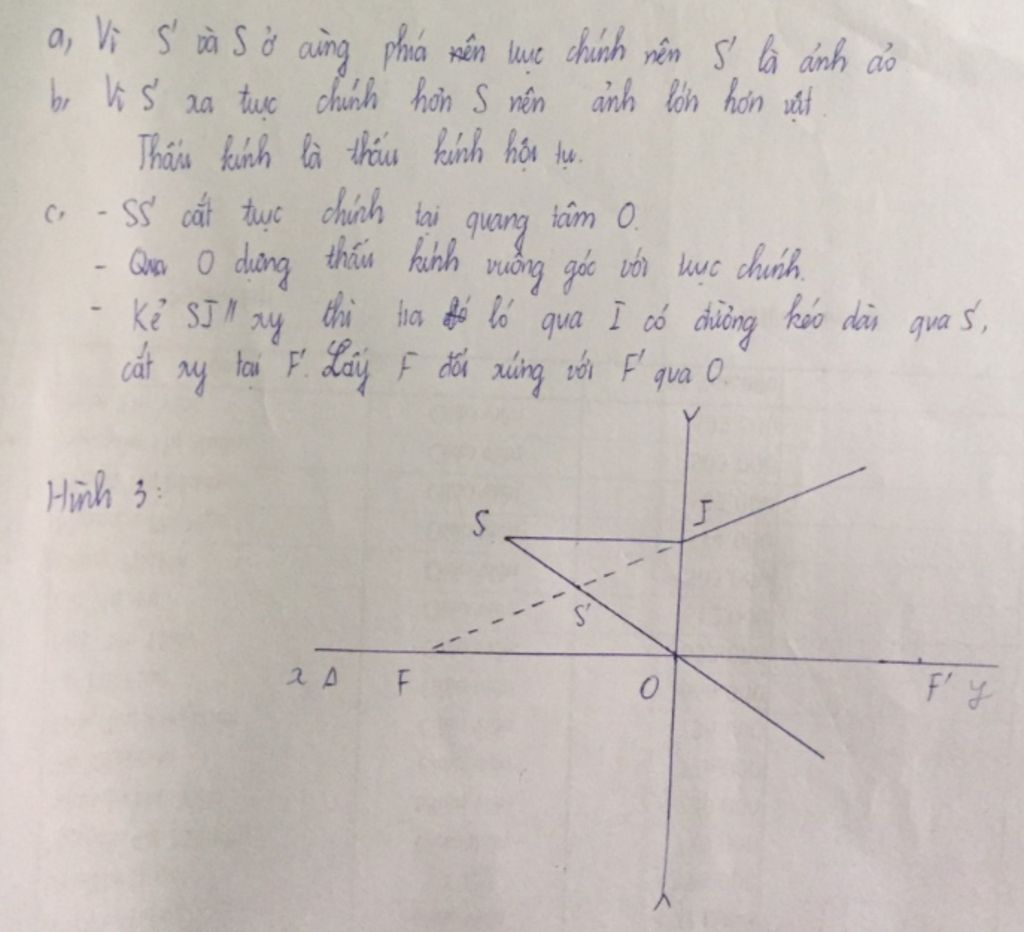 a, Vì S' và S ở cùng phía nên trục chính nên S' là ảnh ảo
b, Vì S' xa trục chính hơn S nên ảnh lớn hơn vật.
Thấu kính là thấu kính hội tụ.
c, - SS' cắt trục chính tại quang tâm O.
- Qua O dựng thấu kính vuông góc với trục chính.
- Kẻ SI // xy thì tia ló qua I có đường kéo dài qua S',
cắt xy tại F'. Lấy F đối xứng với F' qua O.
Hình 3:
S I
S'
x Δ F O F' y